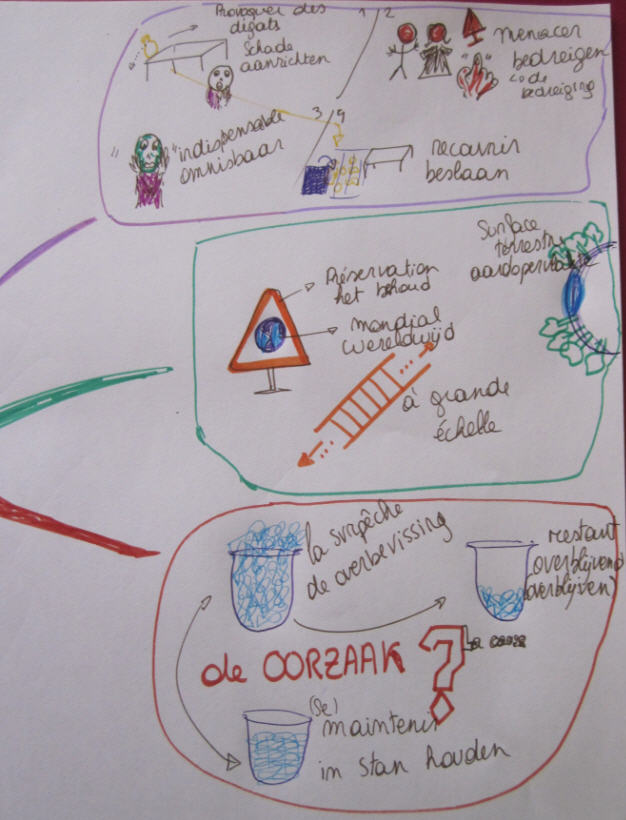 Provoquer des
dégats
Schade
aanrichten
1/2
menacer
bedreigen
↳ de
bedreiging
3/4
"indispensable"
onmisbaar
recouvrir
beslaan
Surface
terrestre
aardoppervlakte
Préservation
het behoud
mondial
wereldwijd
à grande
échelle
la surpêche
de overbevissing
restant
overblijvend
(overblijven)
de OORZAAK ?
La cause
(se)
maintenir
in stan houden